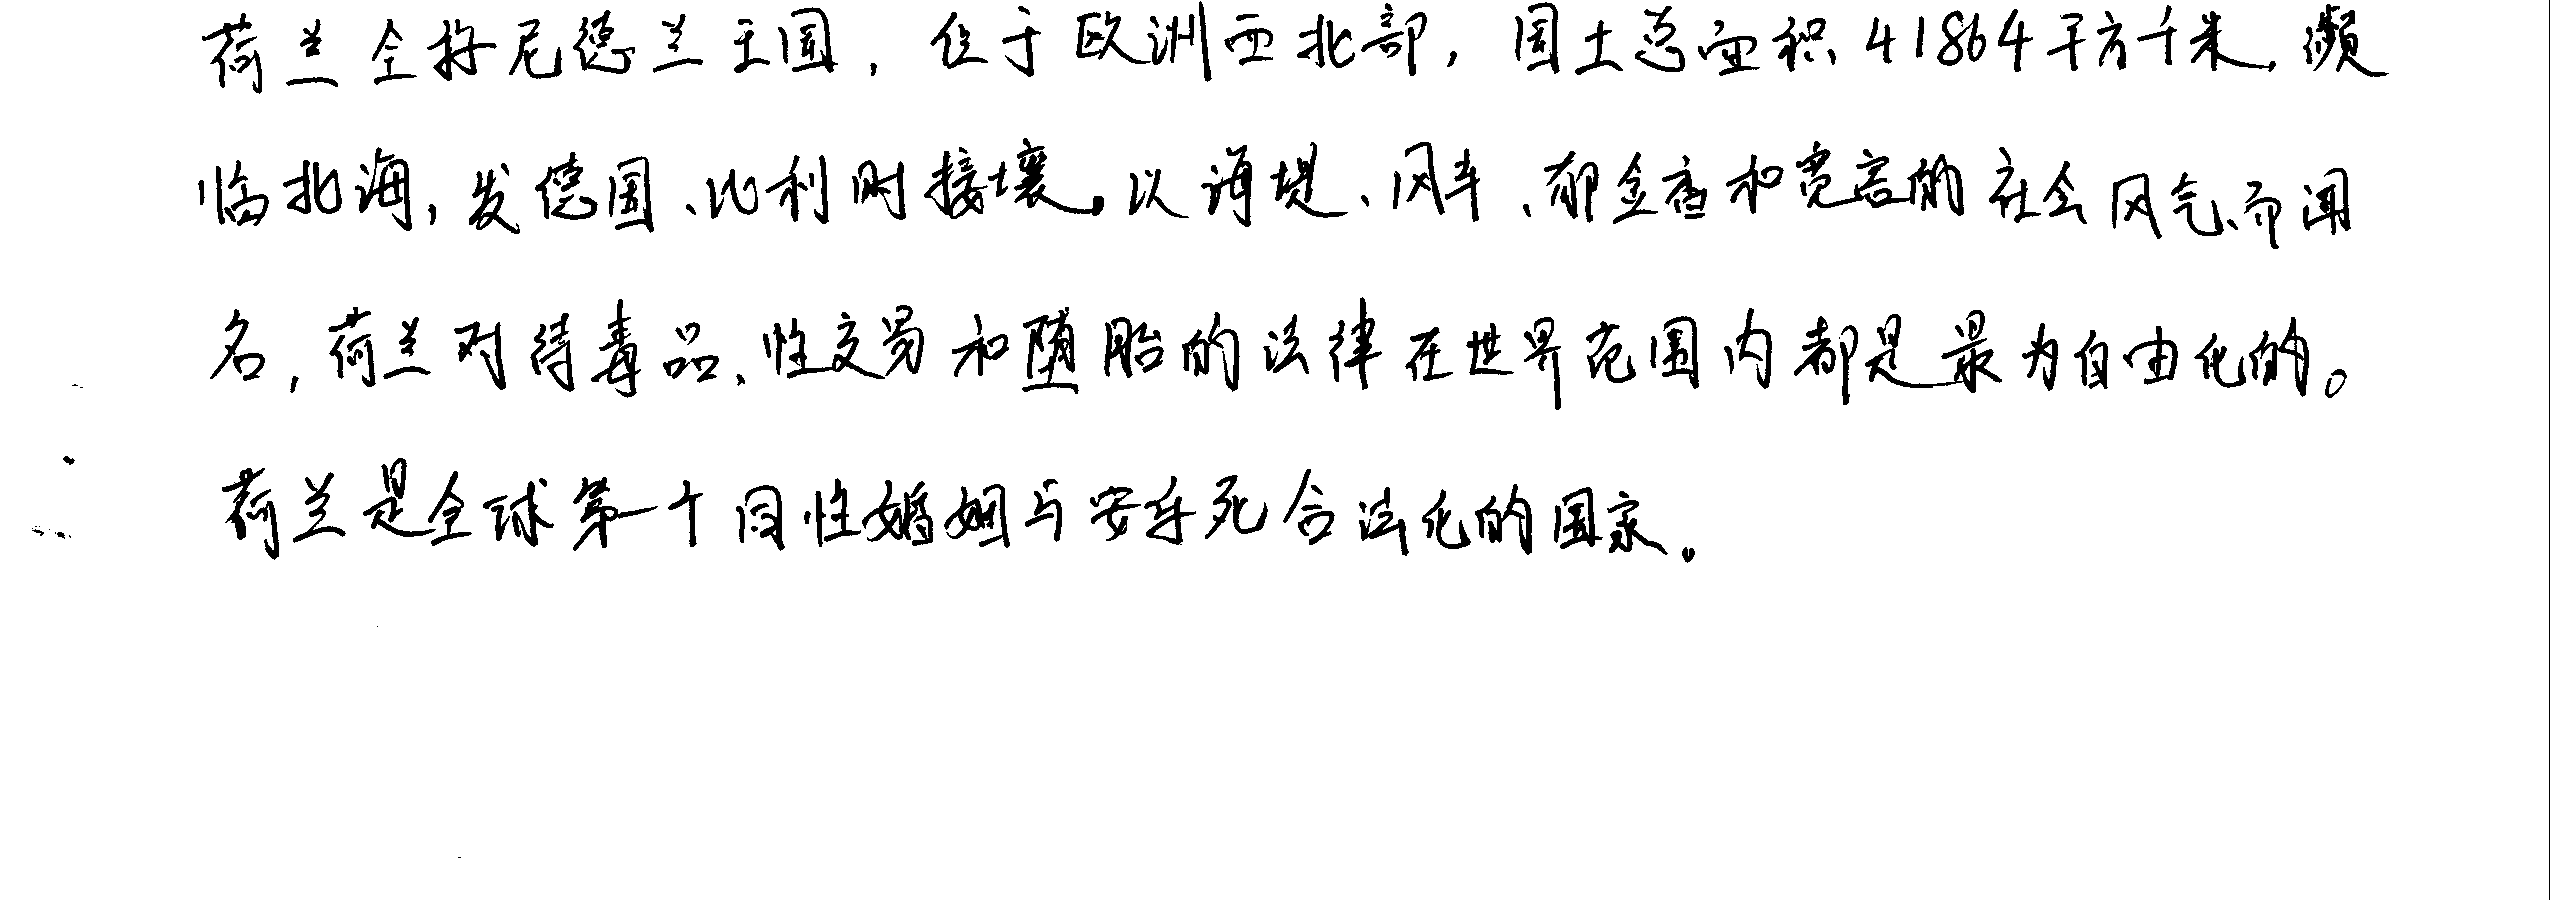 荷兰全称尼德兰王国，位于欧洲西北部，国土总面积41864平方千米，濒
临北海，发德国、比利时接壤。以海堤、风车、郁金香和宽容的社会风气而闻
名，荷兰对待毒品、性交易和堕胎的法律在世界范围内都是最为自由化的。
荷兰是全球第一个同性婚姻与安乐死合法化的国家。